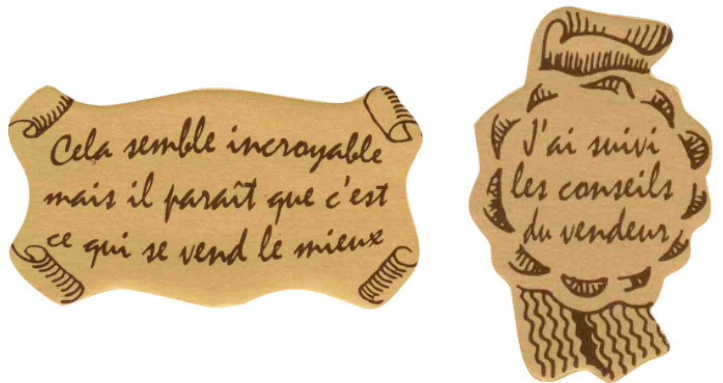 Cela semble incroyable
mais il paraît que c'est
ce qui se vend le mieux
J'ai suivi
les conseils
du vendeur